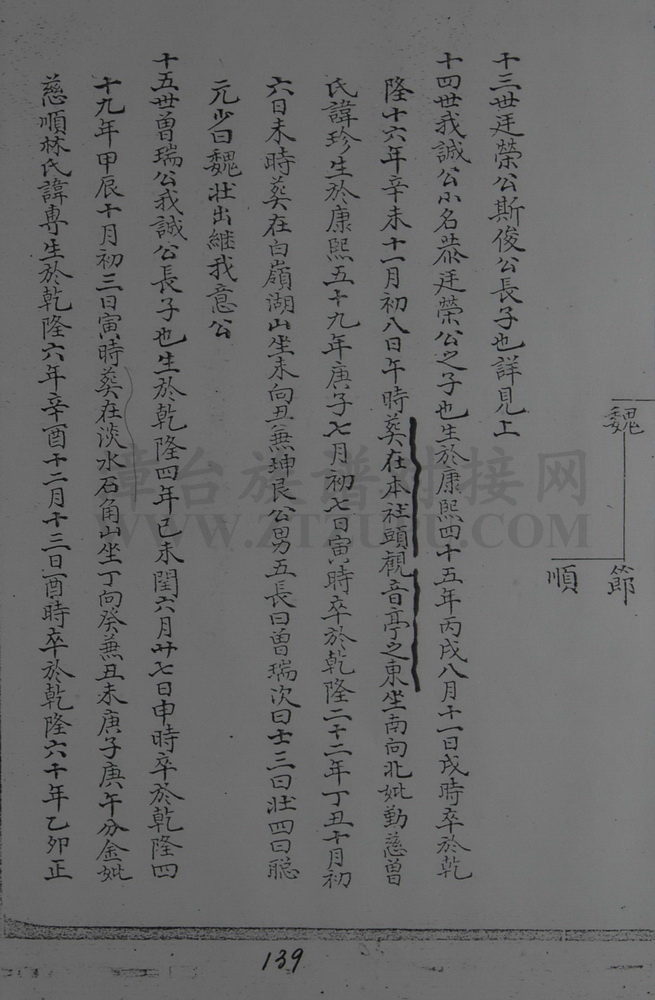 魏
節
順
十三世廷榮公斯俊公長子也詳見上
十四世我誠公小名恭廷榮公之子也生於康熙四十五年丙戌八月十一日戌時卒於乾
隆十六年辛未十一月初八日午時葬在本社頭觀音亭之東坐南向北妣勤慈曾
氏諱珍生於康熙五十九年庚子七月初七日寅時卒於乾隆二十二年丁丑十月初
六日未時葬在白嶺湖山坐未向丑兼坤艮公男五長曰曾瑞次曰士三曰壯四曰聰
元少曰魏壯出繼我意公
十五世曾瑞公我誠公長子也生於乾隆四年己未閏六月廿七日申時卒於乾隆四
十九年甲辰十月初三日寅時葬在淡水石角山坐丁向癸兼丑未庚子庚午分金妣
慈順林氏諱專生於乾隆六年辛酉十二月十三日酉時卒於乾隆六十年乙卯正
漳台族谱对接网
WWW.ZTZUPU.COM
139